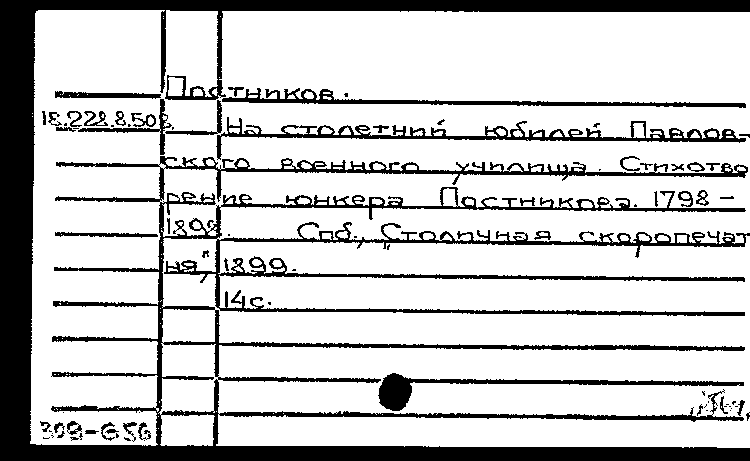 Постников.
18.228.8.508
На столетний юбилей Павлов-
ского военного училища. Стихотво
рение юнкера Постникова. 1798 –
1898. Спб., „Столичная скоропечат
ня", 1899.
14с.
309-656